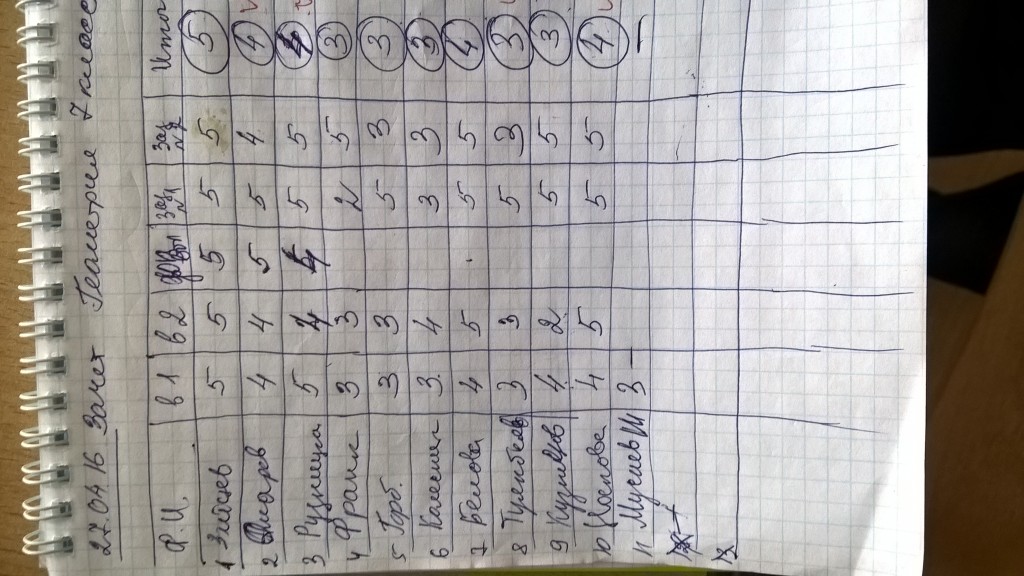 27.04 16 Зачет Геометрия 7 класс
Ф.И. в 1 в 2 зад1 зад№2 Итог
1 Зайцев 5 5 5 5 5 5
2 4 4 5 5 4 4
3 Рузница 5 4 4 5 5 4
4 Франк 3 3 2 5 3
5 Горб. 3 3 5 3 3
6 3 4 3 3 3
7 Белова 4 5 5 5 4
8 3 3 5 3 3
9 4 2 5 5 3
10 4 5 5 5 4
11 3 — —